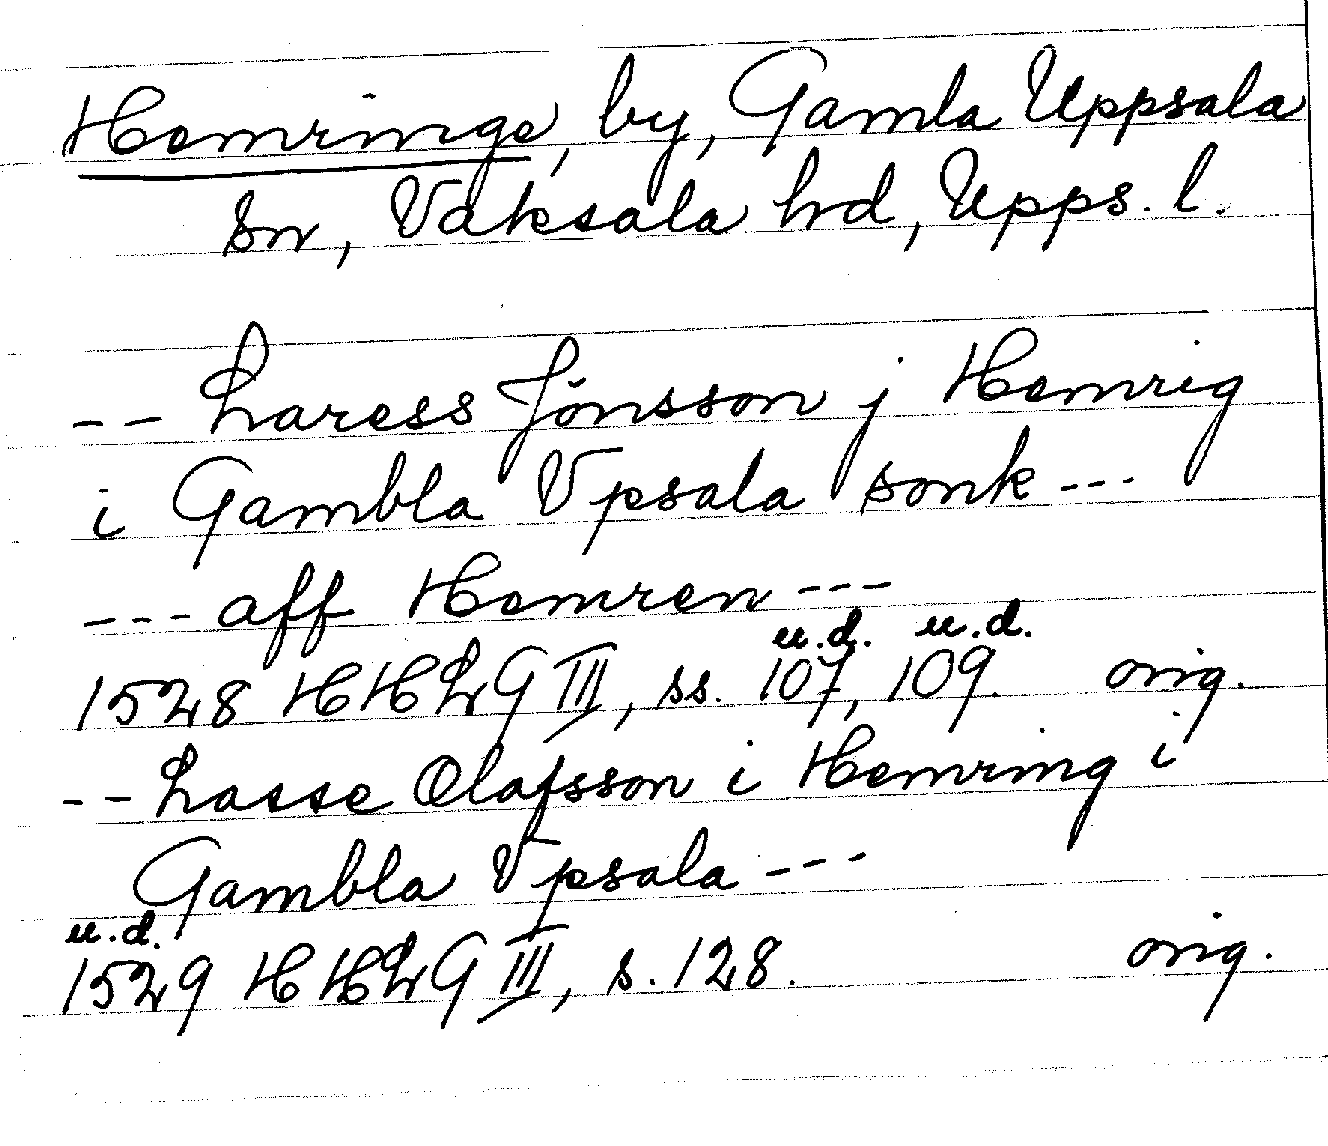 Hemringe, by, Gamla Uppsala
sn, Vaksala hrd, Upps. l.
-- Laress Jönsson j Hemrig
i Gambla Vpsala sonk ---
--- aff Hemren ---
u.d. u.d.
1528 HHLG III, ss. 107, 109. orig.
-- Lasse Olafsson i Hemring i
Gambla Vpsala ---
u.d.
1529 HHLG III, s. 128. orig.